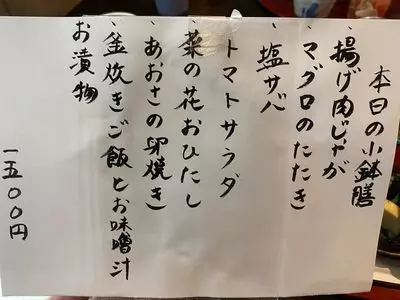 本日の小鉢膳
・揚げ肉じゃが
・マグロのたたき
・塩サバ
・トマトサラダ
・菜の花おひたし
・あおさの卵焼き
・釜炊きご飯とお味噌汁
お漬物
一五〇〇円